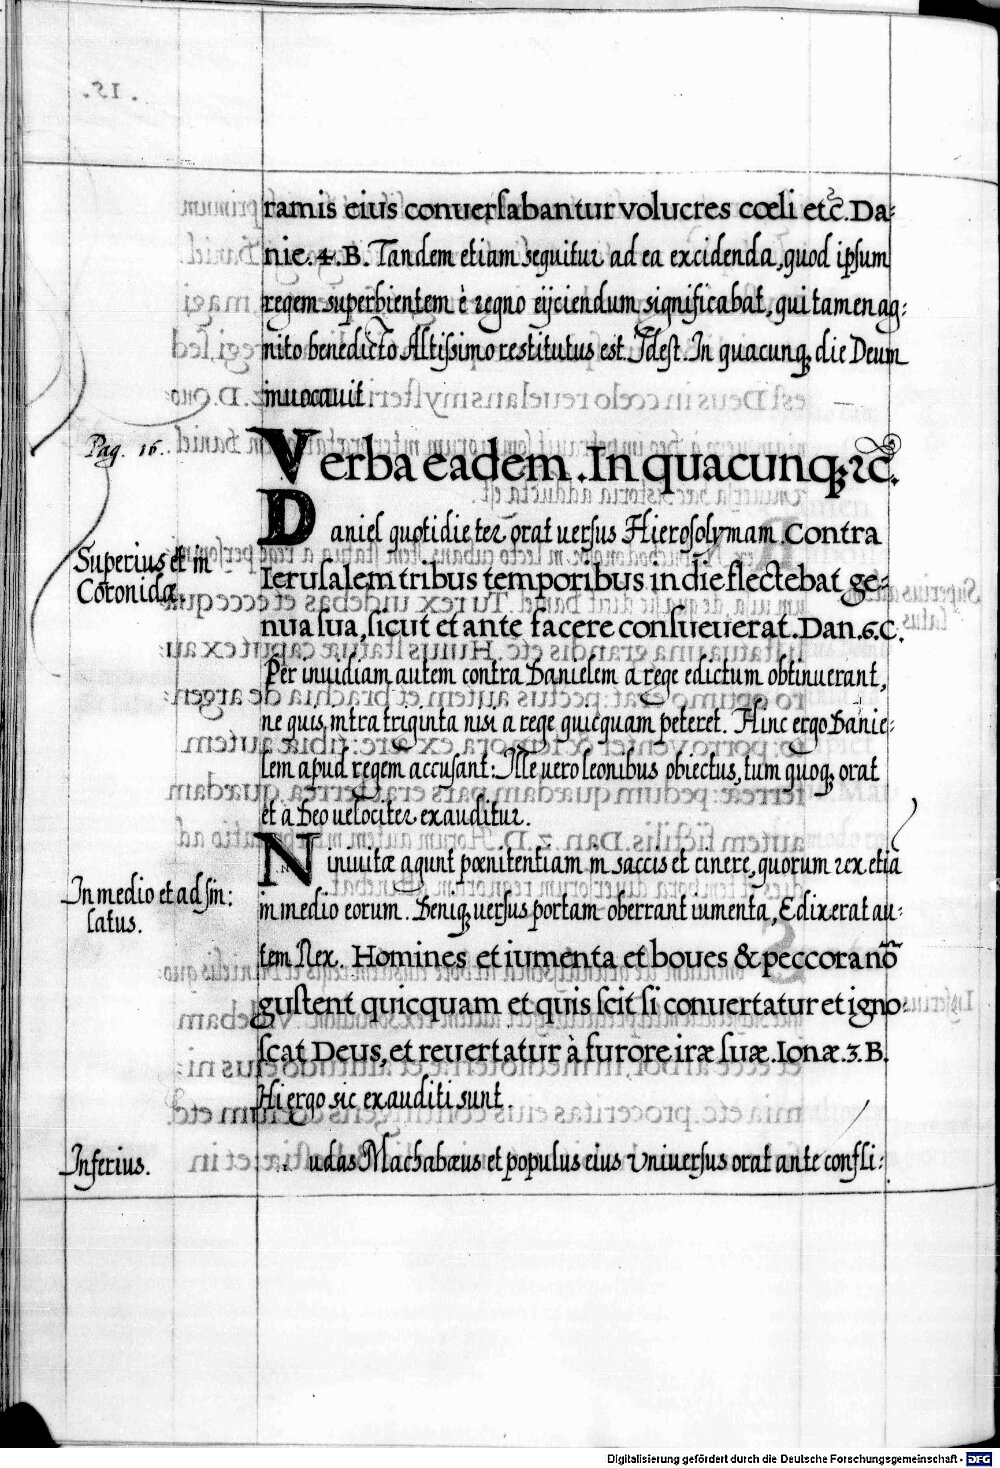 ramis eius conuersabantur volucres cœli etc̃. Da-
nie. 4. B. Tandem etiam sequitur ad ea excidenda, quod ipsum
regem superbientem è regno eijciendum significabat, qui tamen ag-
nito benedicto Altissimo restitutus est. Idest. In quacunq; die Deum
inuocauit.
Pag. 16.
Verba eadem. In quacunq; ꝛc̃.
Daniel quotidie ter orat uersus Hierosolymam. Contra
Superius et in
Coronida.
Ierusalem tribus temporibus in die flectebat ge-
nua sua, sicut et ante facere consueuerat. Dan. 6. C.
Per inuidiam autem contra Danielem à rege edictum obtinuerant,
ne quis intra triginta nisi a rege quicquam peteret. Hinc ergo Danie-
lem apud regem accusant: Ille uero leonibus obiectus, tum quoq; orat
et à Deo uelociter exauditur.
Niniuitæ agunt pœnitentiam in saccis et cinere, quorum rex etiã
In medio et ad sin:
latus.
in medio eorum. Deniq; uersus portam oberrant iumenta, Edixerat au-
tem Rex. Homines et iumenta et boues & peccora nõ
gustent quicquam et quis scit si conuertatur et igno-
scat Deus, et reuertatur à furore iræ suæ. Ionæ. 3. B.
Hi ergo sic exauditi sunt.
Inferius.
udas Machabæus et populus eius Vniuersus orat ante confli-
Digitalisierung gefördert durch die Deutsche Forschungsgemeinschaft - DFG